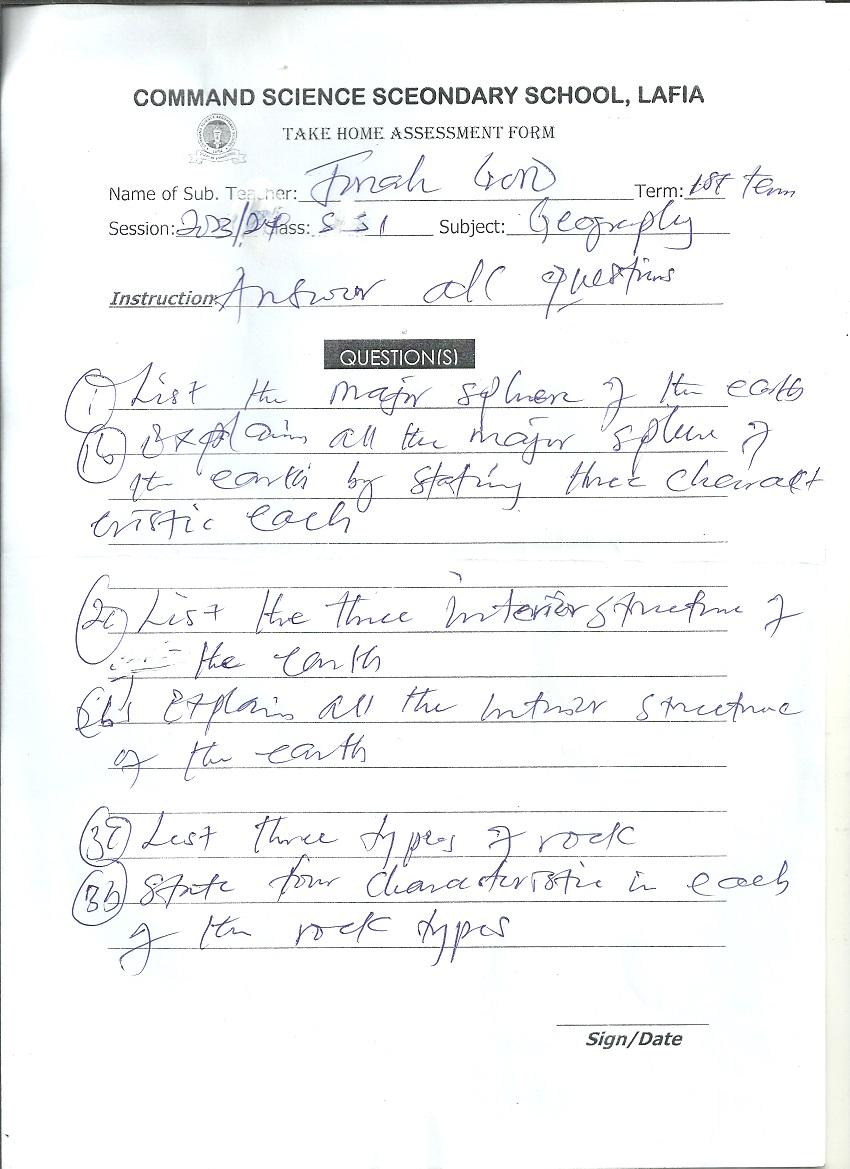 COMMAND SCIENCE SCEONDARY SCHOOL, LAFIA
TAKE HOME ASSESSMENT FORM
Name of Sub. Teacher: Jonah Term: 1st term
Session: 2023/24 Class: SS1 Subject: Geography
Instruction: Answer all questions
QUESTION(S)
1) List the major sphere of the earth
1b Explain all the major sphere of
the earth by stating three charact
eristic each
2a List the three interior structure of
the earth
2b) Explain all the interior structure
of the earth
3a List three types of rock
3b State four characteristic in each
of the rock types
Sign/Date